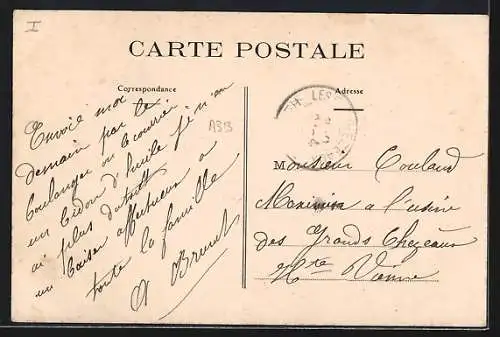 I
CARTE POSTALE
Correspondance
Adresse
A3B
LES
Envoie moi
demain par le
boulanger ou le courrier
un bidon d'huile je n'en
ai plus du tout
un baiser affectueux a
toute la famille
A Brunet
Monsieur Couland
a l'usine
des Grands Chezeaux
Hte Vienne